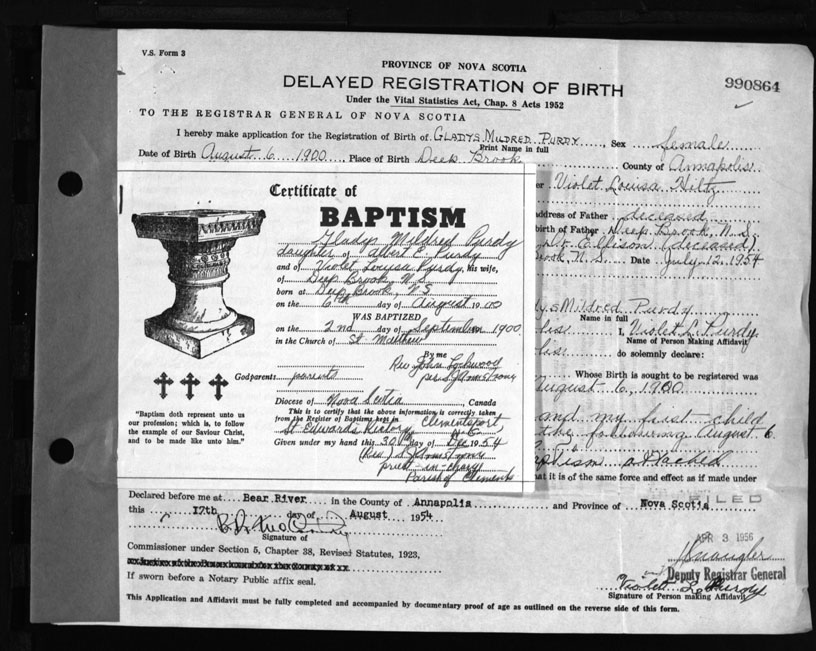 V.S. Form 3
PROVINCE OF NOVA SCOTIA
DELAYED REGISTRATION OF BIRTH
990864
Under the Vital Statistics Act, Chap. 8 Acts 1952
TO THE REGISTRAR GENERAL OF NOVA SCOTIA
I hereby make application for the Registration of Birth of GLADYS MILDRED PURDY Sex female
Print Name in full
Date of Birth August 6 1900 Place of Birth Deep Brook County of Annapolis
Certificate of
BAPTISM
Gladys Mildred Purdy
daughter of Albert E. Purdy
and of Violet Louisa Purdy, his wife,
of Deep Brook, N.S.
born at Deep Brook, N.S.
on the 6th day of August 1900
WAS BAPTIZED
on the 2nd day of September 1900
in the Church of St. Matthew
By me
Rev John Lockwood
Godparents: parents
Diocese of Nova Scotia, Canada
This is to certify that the above information is correctly taken
from the Register of Baptisms kept in Clementsport
St Edwards Rectory N.S.
Given under my hand this 30th day of Dec 1954
(Rev.) Armstrong
priest-in-charge
Parish of Clements
"Baptism doth represent unto us
our profession; which is, to follow
the example of our Saviour Christ,
and to be made like unto him."
er Violet Louisa Hiltz
address of Father deceased
birth of Father Deep Brook, N.S.
Ellison (deceased)
rook, N.S. Date July 12, 1954
dys Mildred Purdy
Name in full
I, Violet L. Purdy
Name of Person Making Affidavit
do solemnly declare:
Whose Birth is sought to be registered was
August 6, 1900
and my first child
the following August 6
ptism attached
at it is of the same force and effect as if made under
Declared before me at Bear River in the County of Annapolis and Province of Nova Scotia
FILED
this 17th day of August 1954
APR 3 1956
Signature of
Commissioner under Section 5, Chapter 38, Revised Statutes, 1923,
Deputy Registrar General
If sworn before a Notary Public affix seal.
Violet L. Purdy
Signature of Person making Affidavit
This Application and Affidavit must be fully completed and accompanied by documentary proof of age as outlined on the reverse side of this form.